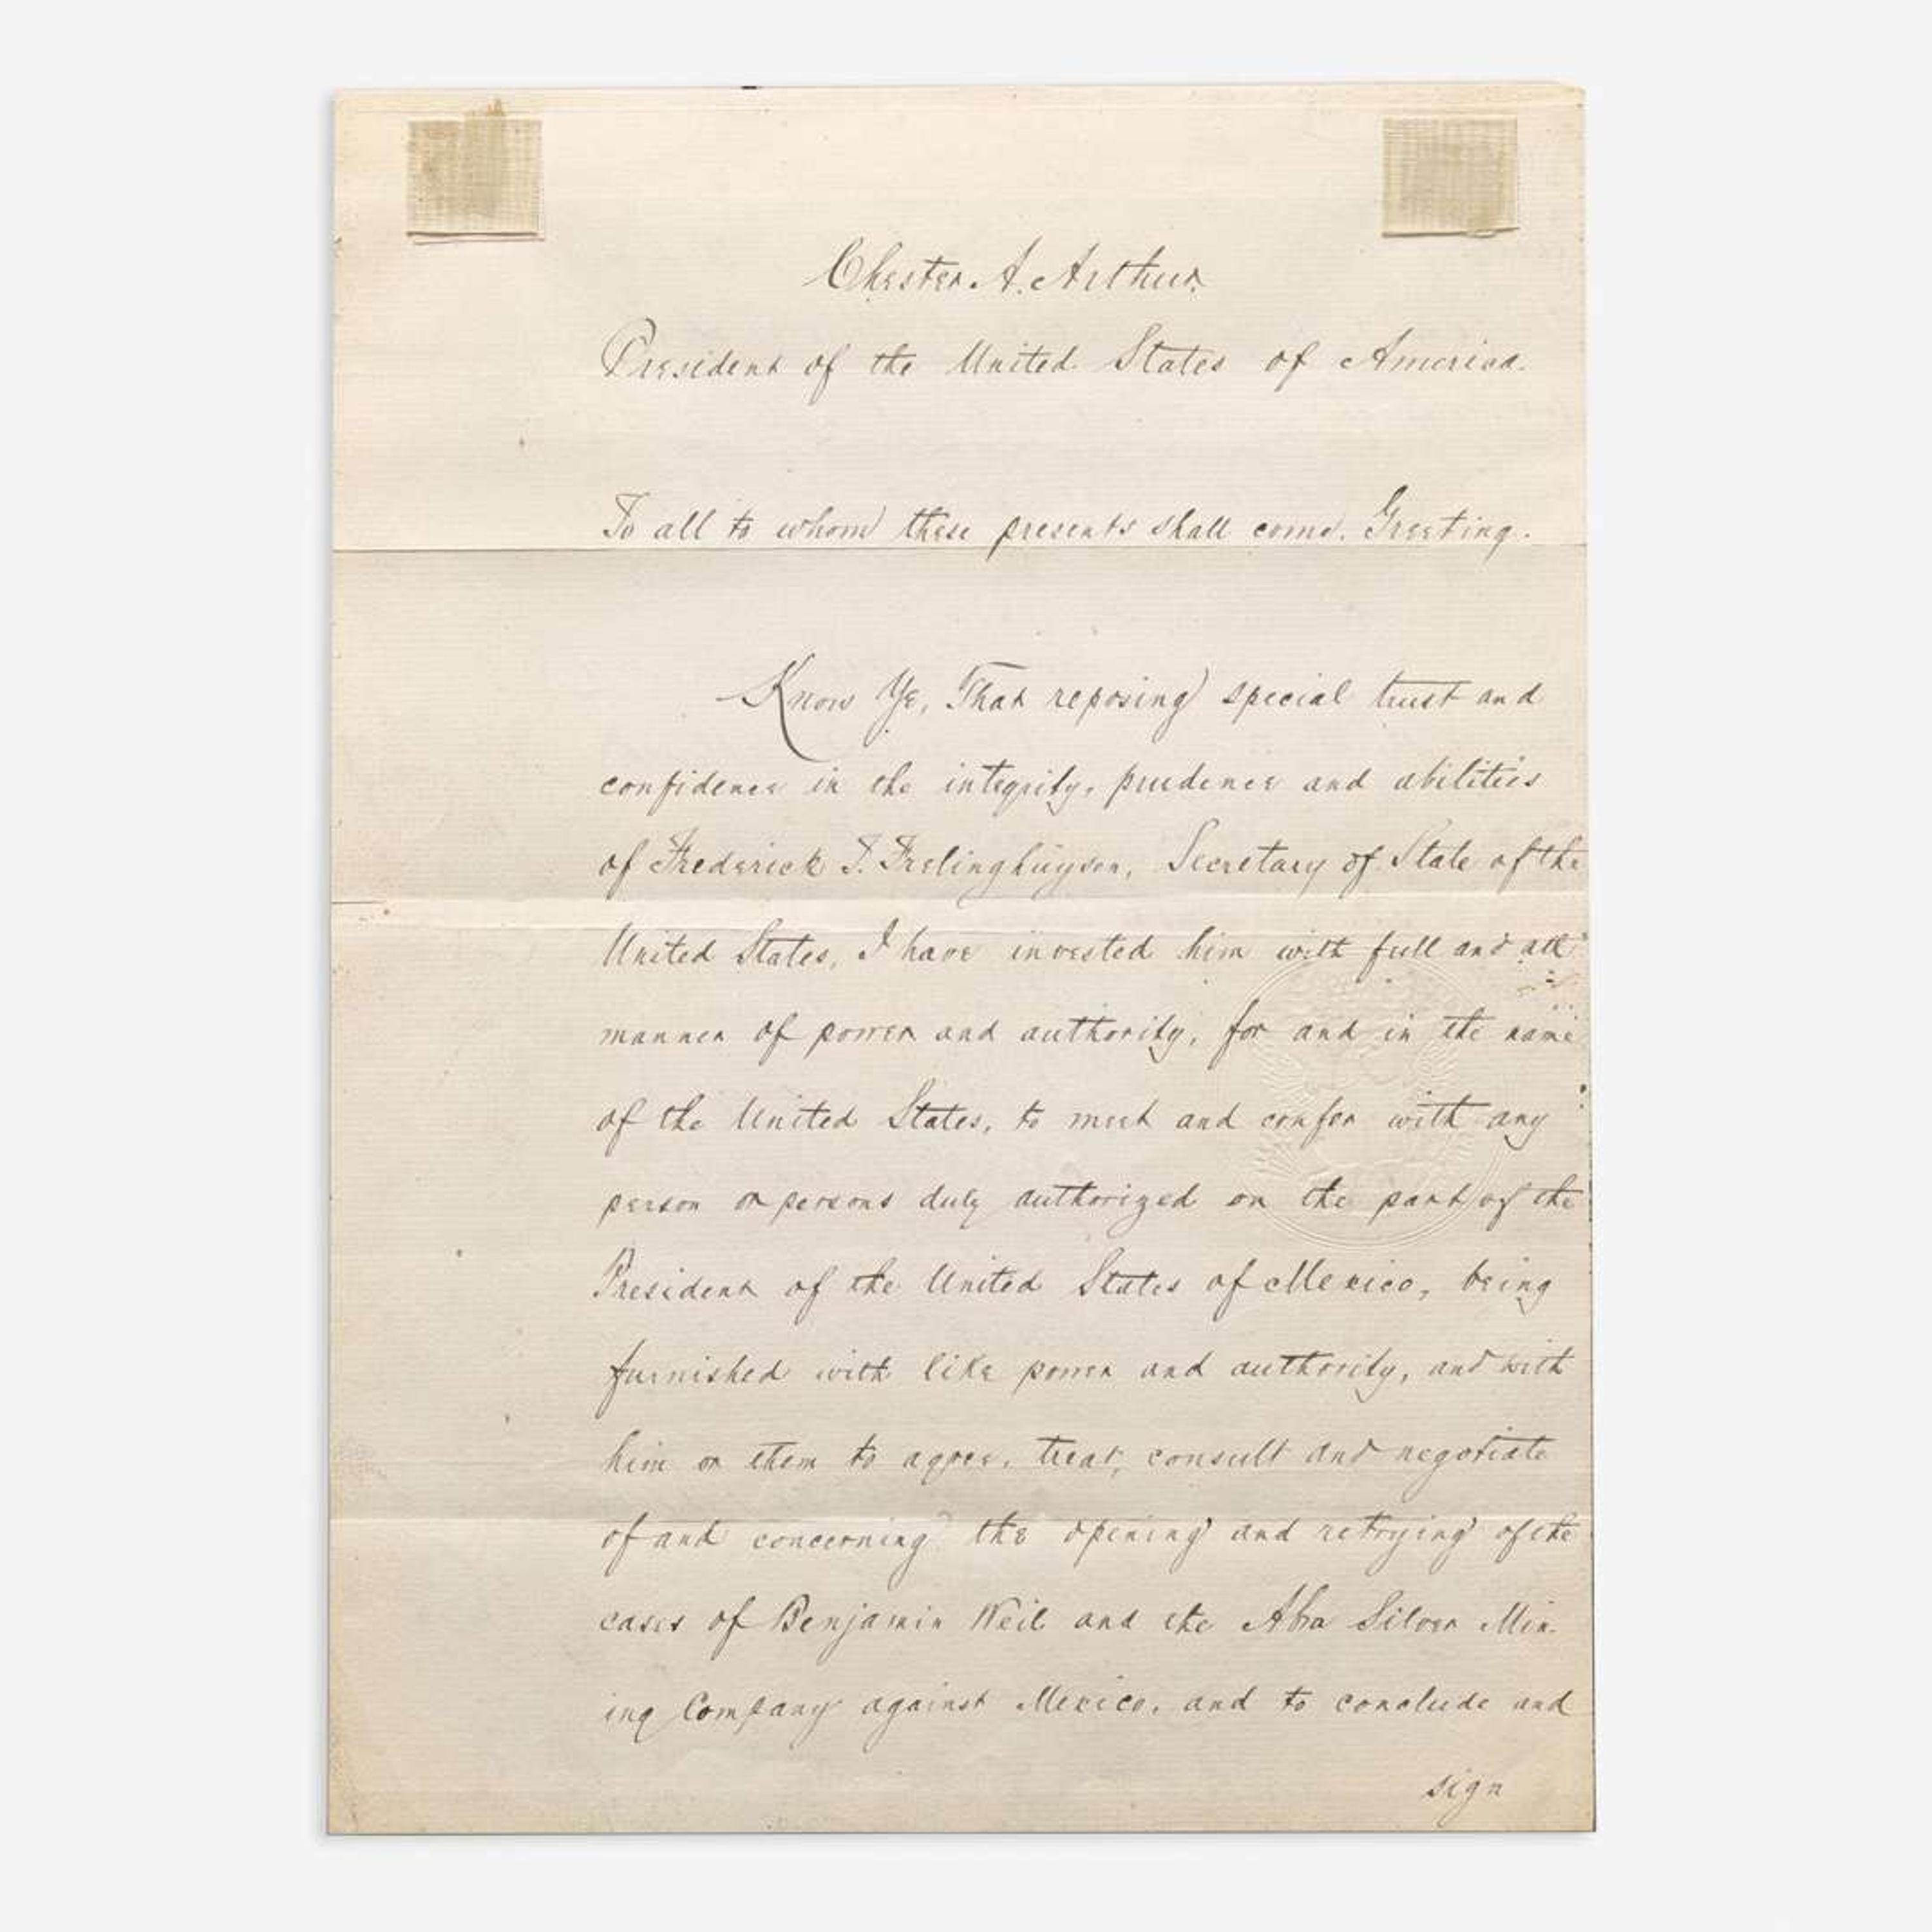 Chester A. Arthur.
President of the United States of America.
To all to whom these presents shall come. Greeting.
Know Ye, That reposing special trust and
confidence in the integrity, prudence and abilities
of Frederick T. Frelinghuysen, Secretary of State of the
United States, I have invested him with full and all
manner of power and authority, for and in the name
of the United States, to meet and confer with any
person or persons duly authorized on the part of the
President of the United States of Mexico, being
furnished with like power and authority, and with
him or them to agree, treat, consult and negotiate
of and concerning the opening and retrying of the
cases of Benjamin Weil and the Abra Silver Min-
ing Company against Mexico, and to conclude and
sign